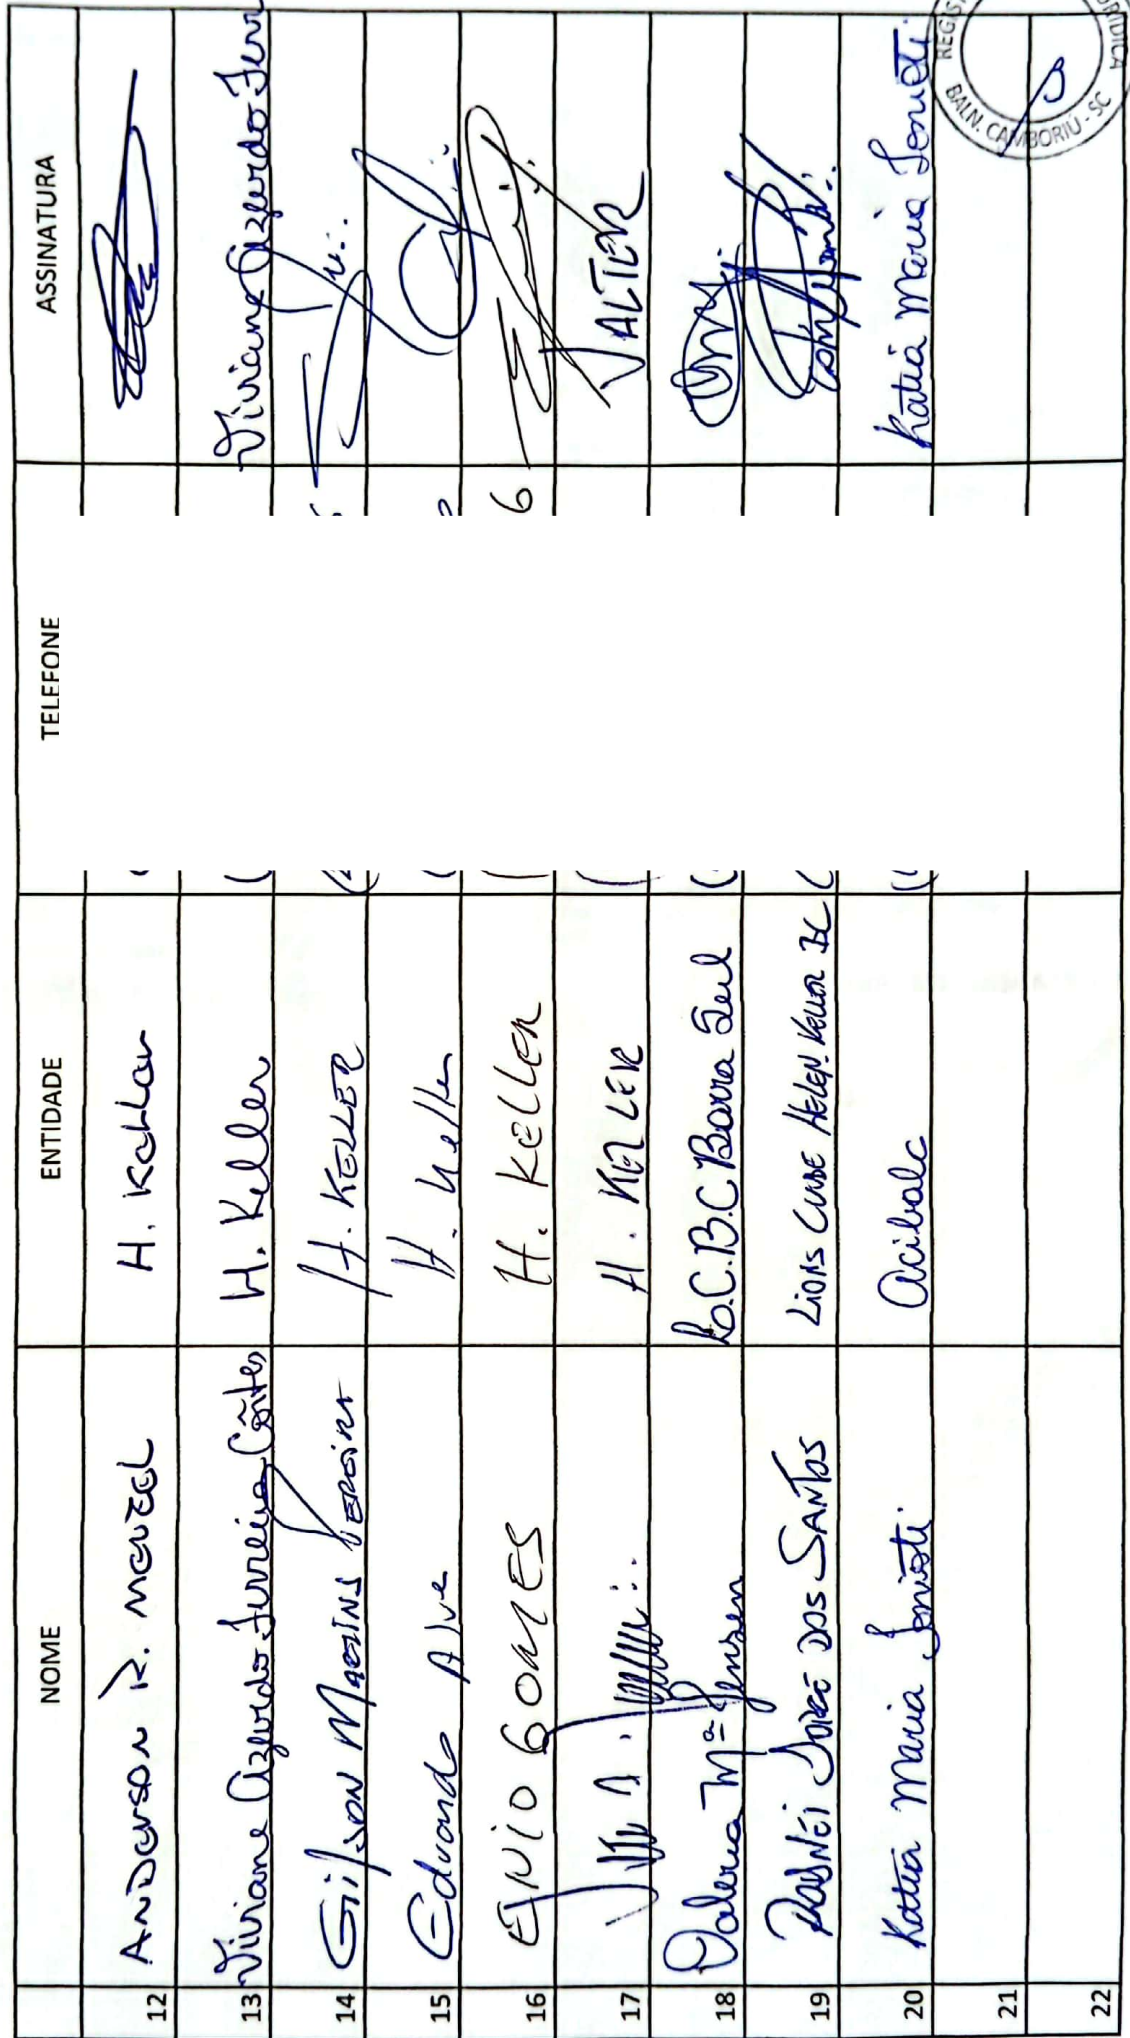 NOME ENTIDADE TELEFONE ASSINATURA
12 ANDERSON R. H. Keller
13 Viviane Azevedo Ferreira Côrtes H. Keller Viviane Azevedo Ferr
14 Gilson Martins Pereira H. KELLER
15 Eduardo Alve H. Keller
16 ENIO GOMES H. KELLER 6
17 H. KELLER VALTER
18 Valeria Mª Jensen B.C. Barra Sul
19 JORGE DOS SANTOS LIONS CLUBE HELEN KELLER BC
20 Katia Maria Acibalc Katia Maria
21
22
BALN. CAMBORIÚ - SC